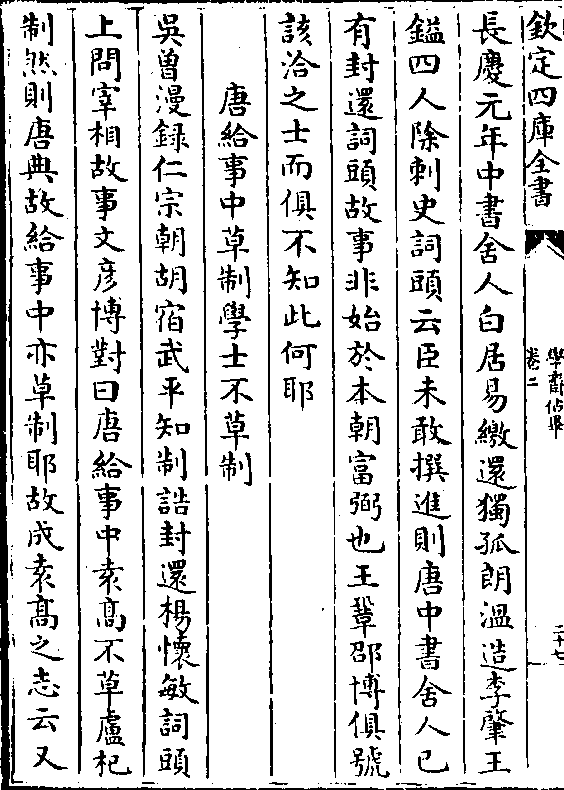 欽定四庫全書
學齋佔畢
卷二
二十七
長慶元年中書舍人白居易繳還獨孤朗溫造李肇王
鎰四人除刺史詞頭云臣未敢撰進則唐中書舍人已
有封還詞頭故事非始於本朝富弼也王鞏邵博俱號
該洽之士而俱不知此何耶
唐給事中草制學士不草制
吳曾漫録仁宗朝胡宿武平知制誥封還楊懷敏詞頭
上問宰相故事文彦博對曰唐給事中袁髙不草盧杞
制然則唐典故給事中亦草制耶故成袁髙之志云又